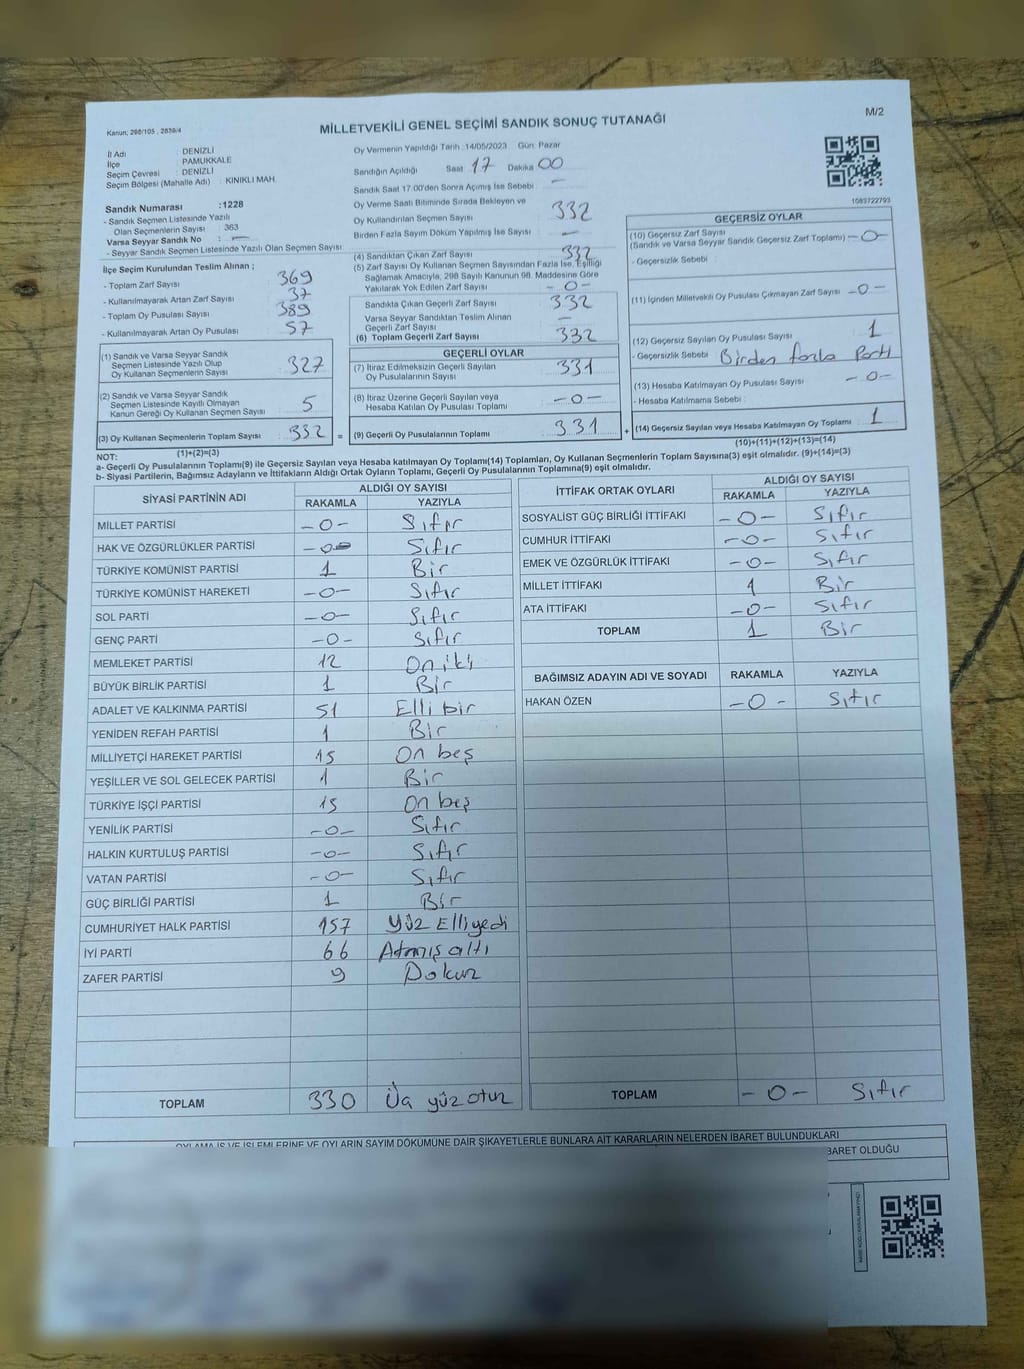 M/2
Kanun; 298/105 , 2839/4
MİLLETVEKİLİ GENEL SEÇİMİ SANDIK SONUÇ TUTANAĞI
İl Adı : DENİZLİ
İlçe : PAMUKKALE
Seçim Çevresi : DENİZLİ
Seçim Bölgesi (Mahalle Adı) : KINIKLI MAH.
Sandık Numarası :1228
- Sandık Seçmen Listesinde Yazılı
Olan Seçmenlerin Sayısı : 363
Varsa Seyyar Sandık No : —
- Seyyar Sandık Seçmen Listesinde Yazılı Olan Seçmen Sayısı :
İlçe Seçim Kurulundan Teslim Alınan ;
- Toplam Zarf Sayısı 369
- Kullanılmayarak Artan Zarf Sayısı 37
- Toplam Oy Pusulası Sayısı 389
- Kullanılmayarak Artan Oy Pusulası 57
(1) Sandık ve Varsa Seyyar Sandık
Seçmen Listesinde Yazılı Olup
Oy Kullanan Seçmenlerin Sayısı 327
(2) Sandık ve Varsa Seyyar Sandık
Seçmen Listesinde Kayıtlı Olmayan
Kanun Gereği Oy Kullanan Seçmen Sayısı 5
(3) Oy Kullanan Seçmenlerin Toplam Sayısı 332 =
(1)+(2)=(3)
Oy Vermenin Yapıldığı Tarih :14/05/2023 Gün: Pazar
Sandığın Açıldığı Saat 17 Dakika 00
Sandık Saat 17.00'den Sonra Açımış İse Sebebi —
Oy Verme Saati Bitiminde Sırada Bekleyen ve
Oy Kullandırılan Seçmen Sayısı 332
Birden Fazla Sayım Döküm Yapılmış İse Sayısı —
(4) Sandıktan Çıkan Zarf Sayısı 332
(5) Zarf Sayısı Oy Kullanan Seçmen Sayısından Fazla İse, Eşitliği
Sağlamak Amacıyla, 298 Sayılı Kanunun 98. Maddesine Göre
Yakılarak Yok Edilen Zarf Sayısı -0-
Sandıkta Çıkan Geçerli Zarf Sayısı 332
Varsa Seyyar Sandıktan Teslim Alınan
Geçerli Zarf Sayısı —
(6) Toplam Geçerli Zarf Sayısı 332
GEÇERLİ OYLAR
(7) İtiraz Edilmeksizin Geçerli Sayılan
Oy Pusulalarının Sayısı 331
(8) İtiraz Üzerine Geçerli Sayılan veya
Hesaba Katılan Oy Pusulası Toplamı -0-
(9) Geçerli Oy Pusulalarının Toplamı 331 +
1083722793
GEÇERSİZ OYLAR
(10) Geçersiz Zarf Sayısı
(Sandık ve Varsa Seyyar Sandık Geçersiz Zarf Toplamı) -0-
- Geçersizlik Sebebi :
(11) İçinden Milletvekili Oy Pusulası Çıkmayan Zarf Sayısı -0-
(12) Geçersiz Sayılan Oy Pusulası Sayısı 1
- Geçersizlik Sebebi Birden fazla Parti
(13) Hesaba Katılmayan Oy Pusulası Sayısı -0-
- Hesaba Katılmama Sebebi :
(14) Geçersiz Sayılan veya Hesaba Katılmayan Oy Toplamı 1
(10)+(11)+(12)+(13)=(14)
NOT:
a- Geçerli Oy Pusulalarının Toplamı(9) ile Geçersiz Sayılan veya Hesaba katılmayan Oy Toplamı(14) Toplamları, Oy Kullanan Seçmenlerin Toplam Sayısına(3) eşit olmalıdır. (9)+(14)=(3)
b- Siyasi Partilerin, Bağımsız Adayların ve İttifakların Aldığı Ortak Oyların Toplamı, Geçerli Oy Pusulalarının Toplamına(9) eşit olmalıdır.
SİYASİ PARTİNİN ADI ALDIĞI OY SAYISI
RAKAMLA YAZIYLA
MİLLET PARTİSİ -0- Sıfır
HAK VE ÖZGÜRLÜKLER PARTİSİ -0- Sıfır
TÜRKİYE KOMÜNİST PARTİSİ 1 Bir
TÜRKİYE KOMÜNİST HAREKETİ -0- Sıfır
SOL PARTİ -0- Sıfır
GENÇ PARTİ -0- Sıfır
MEMLEKET PARTİSİ 12 On iki
BÜYÜK BİRLİK PARTİSİ 1 Bir
ADALET VE KALKINMA PARTİSİ 51 Elli bir
YENİDEN REFAH PARTİSİ 1 Bir
MİLLİYETÇİ HAREKET PARTİSİ 15 On beş
YEŞİLLER VE SOL GELECEK PARTİSİ 1 Bir
TÜRKİYE İŞÇİ PARTİSİ 15 On beş
YENİLİK PARTİSİ -0- Sıfır
HALKIN KURTULUŞ PARTİSİ -0- Sıfır
VATAN PARTİSİ -0- Sıfır
GÜÇ BİRLİĞİ PARTİSİ 1 Bir
CUMHURİYET HALK PARTİSİ 157 Yüz Elliyedi
İYİ PARTİ 66 Atmış altı
ZAFER PARTİSİ 9 Dokuz
TOPLAM 330 Üç yüz otuz
İTTİFAK ORTAK OYLARI ALDIĞI OY SAYISI
RAKAMLA YAZIYLA
SOSYALİST GÜÇ BİRLİĞİ İTTİFAKI -0- Sıfır
CUMHUR İTTİFAKI -0- Sıfır
EMEK VE ÖZGÜRLÜK İTTİFAKI -0- Sıfır
MİLLET İTTİFAKI 1 Bir
ATA İTTİFAKI -0- Sıfır
TOPLAM 1 Bir
BAĞIMSIZ ADAYIN ADI VE SOYADI RAKAMLA YAZIYLA
HAKAN ÖZEN -0- Sıfır
TOPLAM -0- Sıfır
OYLAMA İŞ VE İŞLEMLERİNE VE OYLARIN SAYIM DÖKÜMÜNE DAİR ŞİKAYETLERLE BUNLARA AİT KARARLARIN NELERDEN İBARET BULUNDUKLARI
BARET OLDUĞU